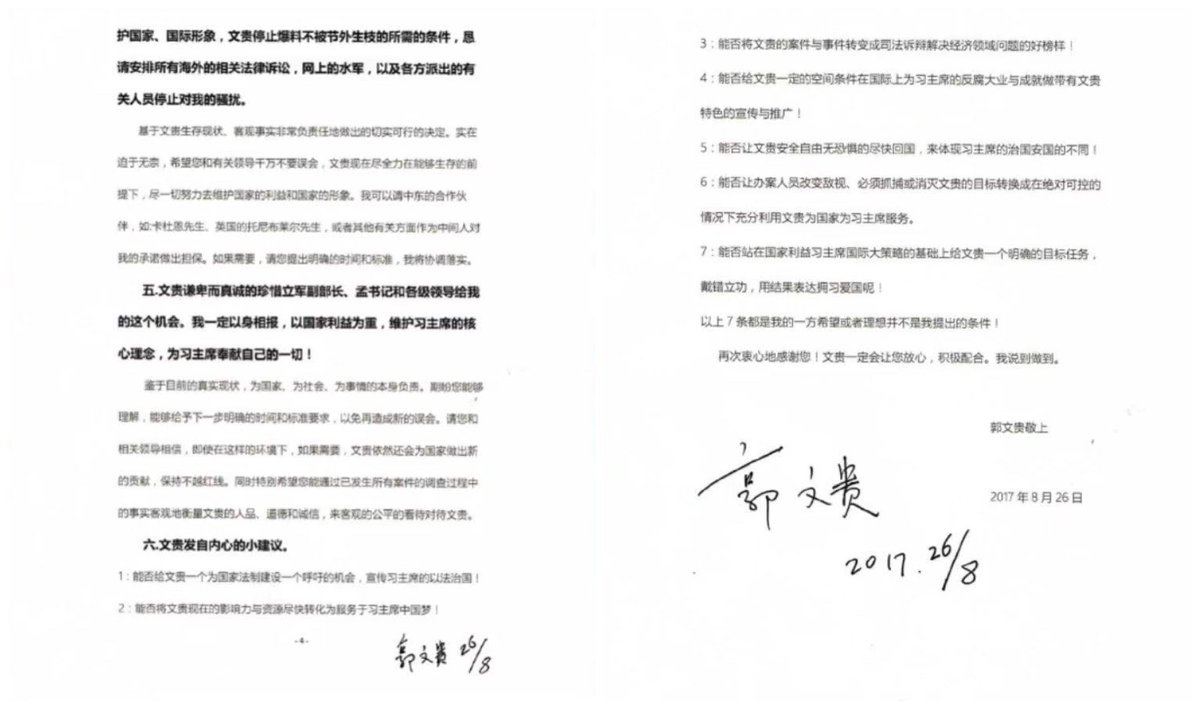 护国家、国际形象，文贵停止爆料不被节外生枝的所需的条件，恳
请安排所有海外的相关法律诉讼，网上的水军，以及各方派出的有
关人员停止对我的骚扰。
基于文贵生存现状、客观事实非常负责任地做出的切实可行的决定。实在
迫于无奈，希望您和有关领导千万不要误会，文贵现在尽全力在能够生存的前
提下，尽一切努力去维护国家的利益和国家的形象。我可以请中东的合作伙
伴，如:卡杜恩先生、英国的托尼布莱尔先生，或者其他有关方面作为中间人对
我的承诺做出担保。如果需要，请您提出明确的时间和标准，我将协调落实。
五.文贵谦卑而真诚的珍惜立军副部长、孟书记和各级领导给我
的这个机会。我一定以身相报，以国家利益为重，维护习主席的核
心理念，为习主席奉献自己的一切！
鉴于目前的真实现状，为国家、为社会、为事情的本身负责。期盼您能够
理解，能够给予下一步明确的时间和标准要求，以免再造成新的误会。请您和
相关领导相信，即使在这样的环境下，如果需要，文贵依然还会为国家做出新
的贡献，保持不越红线。同时特别希望您能通过已发生所有案件的调查过程中
的事实客观地衡量文贵的人品、道德和诚信，来客观的公平的看待对待文贵。
六.文贵发自内心的小建议。
1：能否给文贵一个为国家法制建设一个呼吁的机会，宣传习主席的以法治国！
2：能否将文贵现在的影响力与资源尽快转化为服务于习主席中国梦！
-4-
郭文贵 26/8
3：能否将文贵的案件与事件转变成司法诉辩解决经济领域问题的好榜样！
4：能否给文贵一定的空间条件在国际上为习主席的反腐大业与成就做带有文贵
特色的宣传与推广！
5：能否让文贵安全自由无恐惧的尽快回国，来体现习主席的治国安国的不同！
6：能否让办案人员改变敌视、必须抓捕或消灭文贵的目标转换成在绝对可控的
情况下充分利用文贵为国家为习主席服务。
7：能否站在国家利益习主席国际大策略的基础上给文贵一个明确的目标任务，
戴错立功，用结果表达拥习爱国呢！
以上 7 条都是我的一方希望或者理想并不是我提出的条件！
再次衷心地感谢您！文贵一定会让您放心，积极配合。我说到做到。
郭文贵敬上
郭文贵
2017 年 8 月 26 日
2017. 26/8